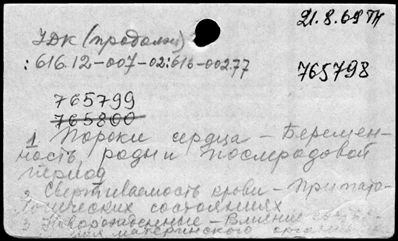 21.8.69
УДК (продолж)
:616.12-007-02:618-002.77
765798
765799
765800
1 Пороки сердца – Беремен-
ность, роды и послеродовой
период
2 Свертываемость крови – При пато-
логических состояниях
3 Новорожденные – Влияние
материнского